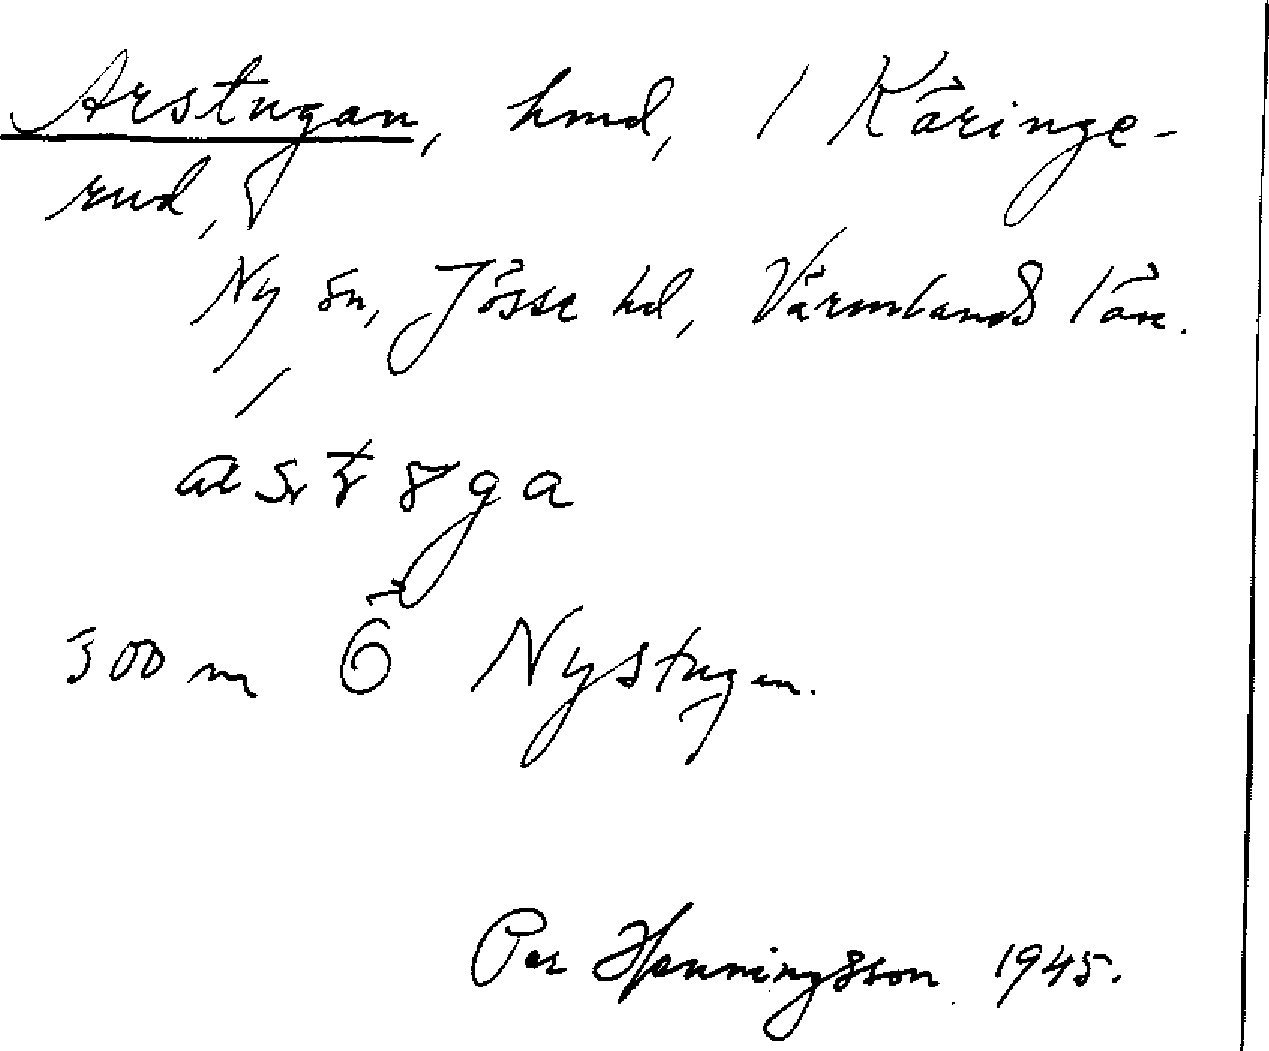 Arstugan, hmd, 1 Käringe-
rud,
Ny sn, Jösse hd, Värmlands län.
300 m Ö Nystugan.
Per Henningsson 1945.